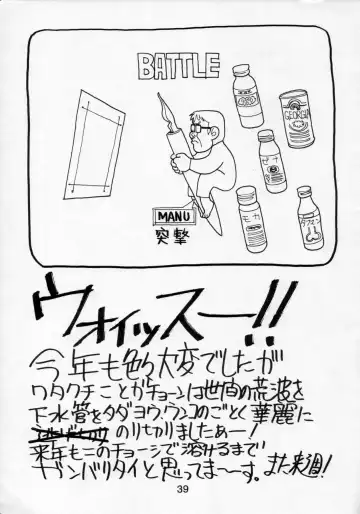 BATTLE
GEORGIA
ゼナ
モカ
タフマン
MANU
突撃
ウォイッスー!!
今年も色々大変でしたが
ワタクチことガチョーンは世間の荒波を
下水管をタダヨウ、ウンコのごとく華麗に
のりきりましたぁー!
来年もこのチョーシで溶みるまで
ガンバリタイと思ってまーーす。また来週!
39